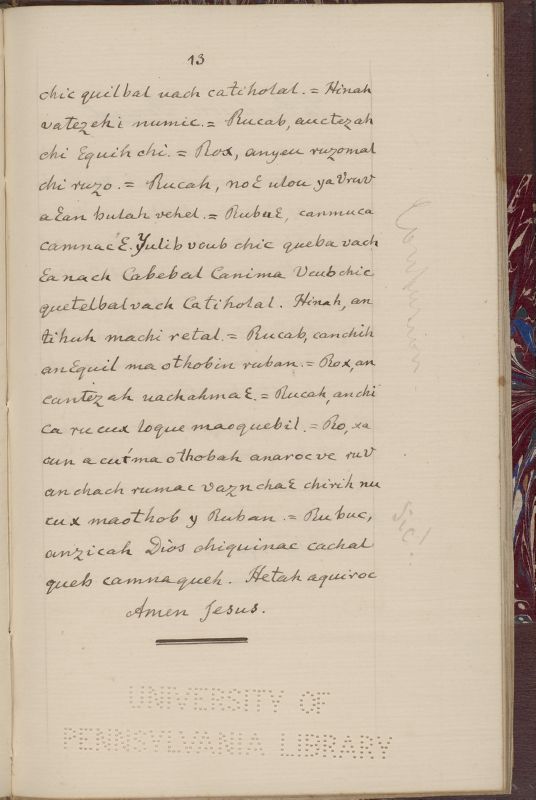 13
chic quilbal vach catiholal. = Hinah
vatezeh i numic. = Rucab, auctezah
chi Equih chi. = Rox, anyeu ruzomal
chi ruzo. = Rucah, noE ulou ya Vruv
a Ean hulah vehel. = RubuE, canmuca
camnac E. Yulib voub chic queba vach
Ea nach Cabebal Canima Vcub chic
quetelbal vach Catiholal. Hinah, an
tihuh machi retal. = Rucab, canchih
an Equil ma othobin ruban. = Rox, an
cantezah uachahmaE. = Rucah, anchi
ca ru cux loque maoquebil. = Ro, xa
cun a cut ma othobah anaroc ve ruv
anchach rumac vazn chaE chirih nu
cux maothob y Ruban. = Rubuc,
anzicah Dios chiquinac cachal
queb camnaqueh. Hetah aquiroc
Amen Jesus.
Sic!
UNIVERSITY OF
PENNSYLVANIA LIBRARY